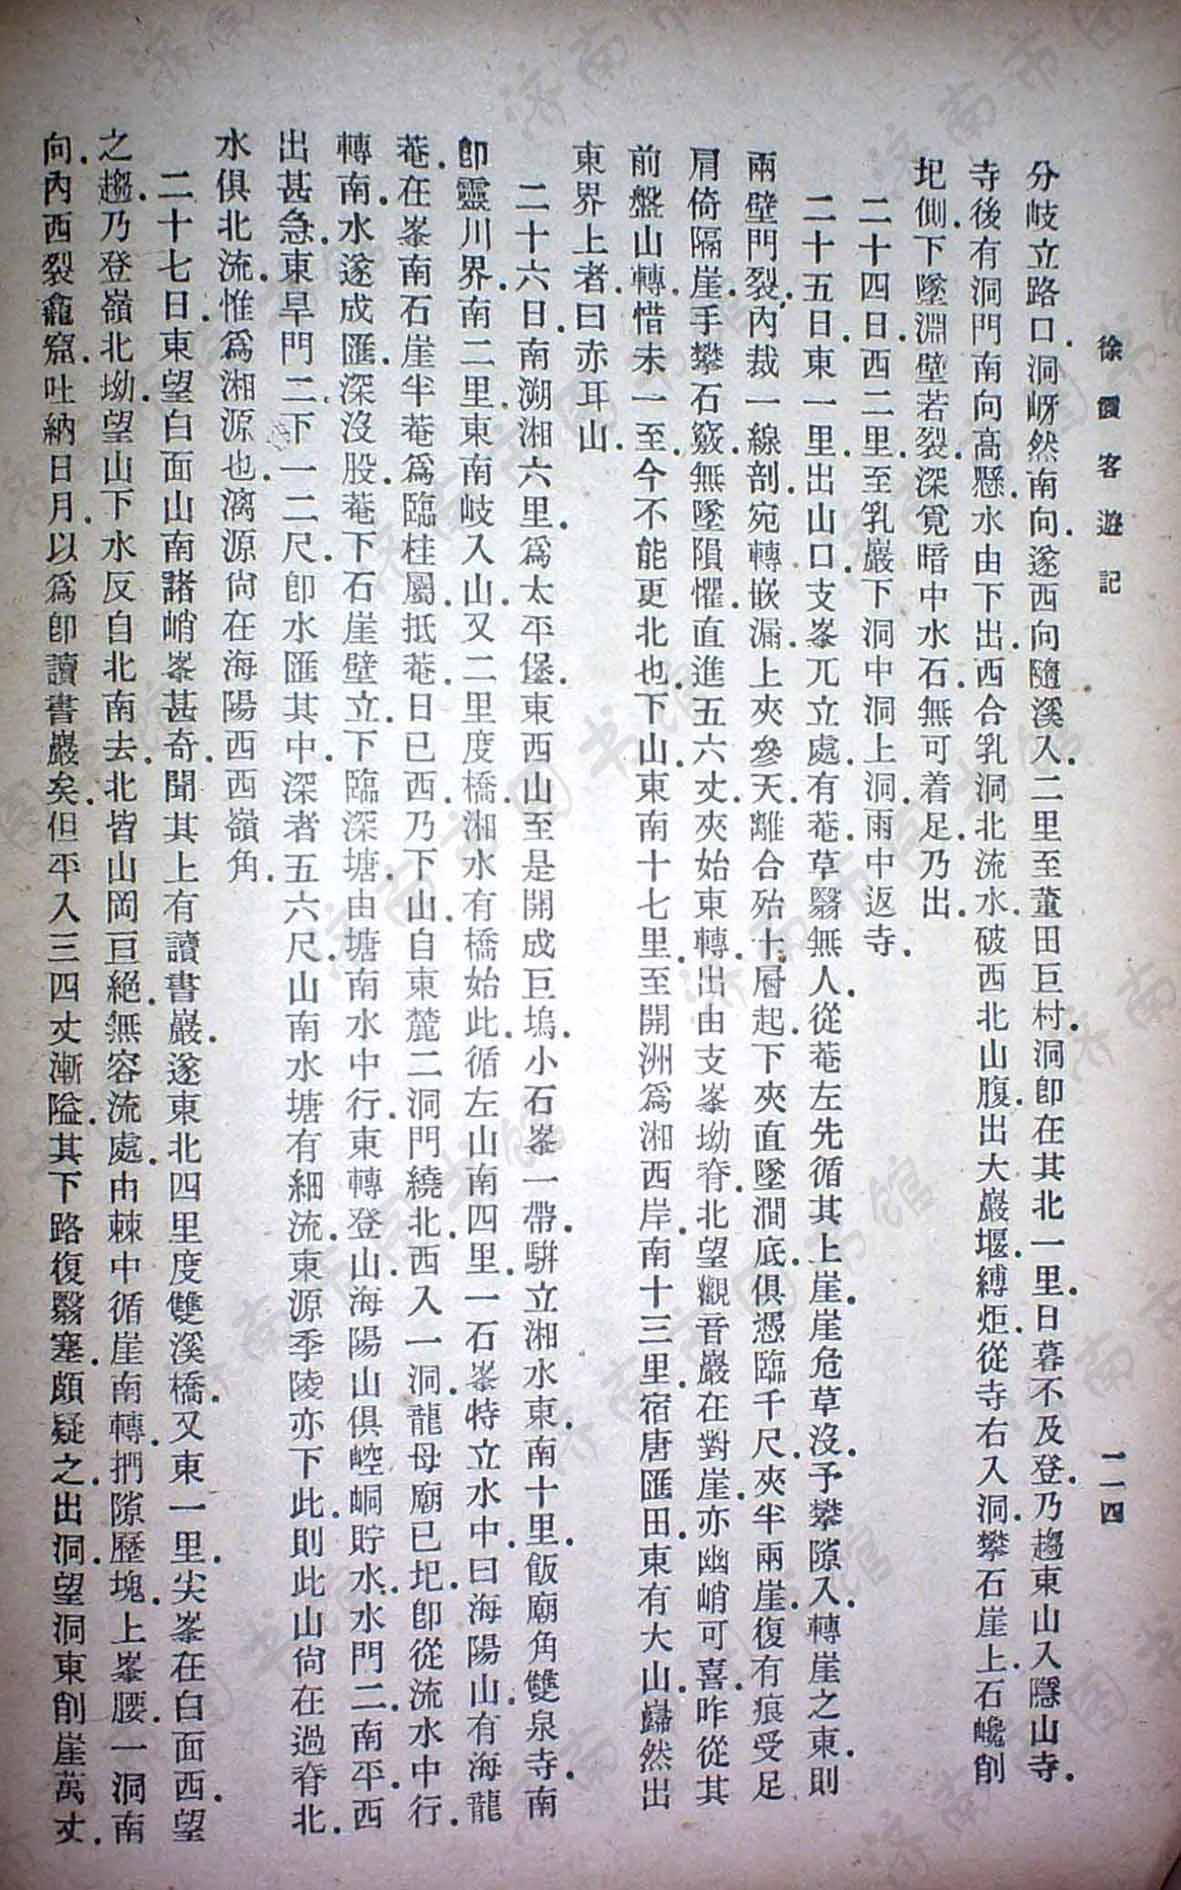 徐霞客遊記
一一四
分岐立路口．洞岈然南向．遂西向隨溪入．二里至董田巨村．洞卽在其北一里．日暮不及登．乃趨東山入隱山寺．
寺後有洞門南向高懸．水由下出．西合乳洞北流水．破西北山腹．出大巖堰．縛炬從寺右入洞．攀石崖上．石巉削
圯側．下墜淵壁若裂．深窅暗中水石．無可着足．乃出．
二十四日．西二里．至乳巖下洞中洞上洞．雨中返寺．
二十五日．東一里．出山口．支峯兀立處．有菴．草翳無人．從菴左先循其上崖．崖危草沒．予攀隙入．轉崖之東．則
兩壁門裂．內裁一線．剖宛轉嵌漏．上夾參天．離合殆十層起．下夾直墜澗底．俱憑臨千尺．夾半兩崖．復有痕受足
肩倚隔崖．手攀石竅．無墜隕懼．直進五六丈．夾始東轉．出由支峯坳脊．北望觀音巖在對崖．亦幽峭可喜．昨從其
前盤山轉．惜未一至．今不能更北也．下山．東南十七里．至開洲．爲湘西岸．南十三里．宿唐匯田．東有大山．巋然出
東界上者．曰赤耳山．
二十六日．南溯湘六里．爲太平堡．東西山至是開成巨塢．小石峯一帶．駢立湘水東．南十里．飯廟角雙泉寺．南
卽靈川界．南二里．東南岐入山．又二里度橋．湘水有橋始此．循左山南四里．一石峯特立水中．曰海陽山．有海龍
菴．在峯南石崖半．菴爲臨桂屬．抵菴．日已西．乃下山．自東麓二洞門繞北．西入一洞．龍母廟已圯．卽從流水中行．
轉南．水遂成匯．深沒股．菴下石崖壁立．下臨深塘．由塘南水中行．東轉登山．海陽山俱崆峒貯水．水門二．南平．西
出甚急．東旱門二．下一二尺．卽水匯其中．深者五六尺．山南水塘有細流．東源季陵亦下此．則此山尙在過脊北．
水俱北流．惟爲湘源也．漓源尙在海陽西西嶺角．
二十七日．東望白面山南諸峭峯甚奇．聞其上有讀書巖．遂東北四里．度雙溪橋．又東一里．尖峯在白面西．望
之趨．乃登嶺北坳．望山下水反自北南去．北皆山岡巨絕．無容流處．由棘中循崖南轉．捫隙歷塊．上峯腰．一洞南
向．內西裂龕窟．吐納日月．以爲卽讀書巖矣．但平入三四丈漸隘．其下路復翳塞．頗疑之．出洞．望洞東削崖萬丈．